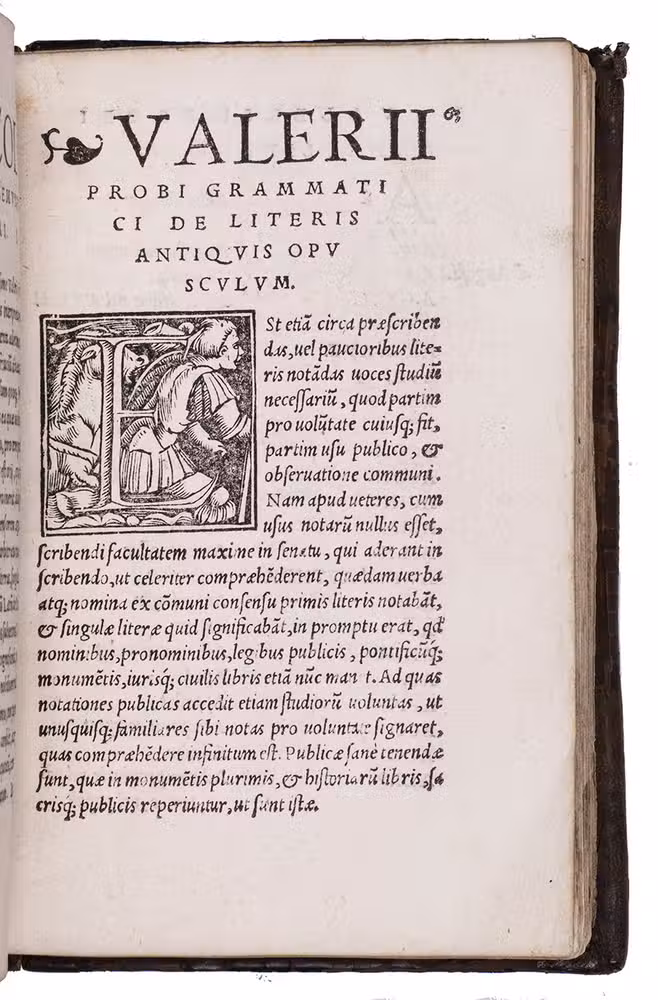 ❧ VALERII
PROBI GRAMMATI
CI DE LITERIS
ANTIQVIS OPV
SCVLVM.
ESt etiã circa præſcriben
das, uel paucioribus lite⸗
ris notãdas uoces ſtudiũ
neceſſariũ, quod partim
pro uolũtate cuiuſq; fit,
partim uſu publico, &
obſeruatione communi.
Nam apud ueteres, cum
uſus notarũ nullus eſſet,
ſcribendi facultatem maxime in ſenatu, qui aderant in
ſcribendo, ut celeriter compræhẽderent, quædam uerba
atq; nomina ex cõmuni conſenſu primis literis notabãt,
& ſingulæ literæ quid ſignificabãt, in promptu erat, qď
nominibus, pronominibus, legibus publicis, pontificũq;
monumẽtis, iuriſq; ciuilis libris etiã nũc man t. Ad quas
notationes publicas accedit etiam ſtudiorũ uoluntas, ut
unuſquiſq; familiares ſibi notas pro uoluntate ſignaret,
quas compræhẽdere infinitum eſt. Publicæ ſanè tenendæ
ſunt, quæ in monumẽtis plurimis, & hiſtoriarũ libris, ſa
criſq; publicis reperiuntur, ut ſunt iſtæ.